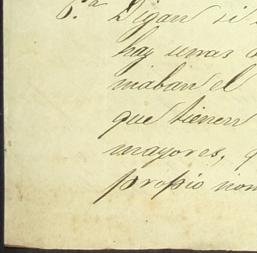 6.ª Digan si
hay unas
maban el
que tienen
mayores,
propio nom